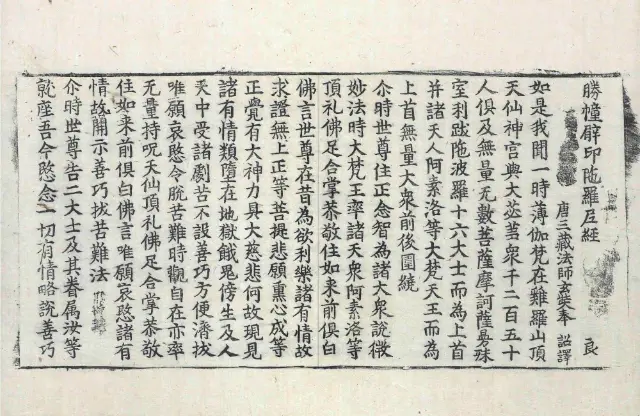 勝幢臂印陁羅尼經 良
唐三藏法師玄奘奉 詔譯
如是我聞一時薄伽梵在雞羅山頂
天仙神宮與大苾芻衆千二百五十
人俱及無量无數菩薩摩訶薩曼殊
室利跋陁波羅十六大士而為上首
并諸天人阿素洛等大梵天王而為
上首無量大衆前後圍繞
尒時世尊住正念智為諸大衆說微
妙法時大梵王率諸天衆阿素洛等
頂礼佛足合掌恭敬住如来前俱白
佛言世尊在昔為欲利樂諸有情故
求證無上正等菩提悲願熏心成等
正覺有大神力具大慈悲何故現見
諸有情類墮在地獄餓鬼傍生及人
天中受諸劇苦不設善巧方便濟拔
唯願哀愍令脫苦難時觀自在亦率
无量持呪天仙頂礼佛足合掌恭敬
住如来前俱白佛言唯願哀愍諸有
情故開示善巧拔苦難法
尒時世尊告二大士及其眷属汝等
就座吾今愍念一切有情略說善巧